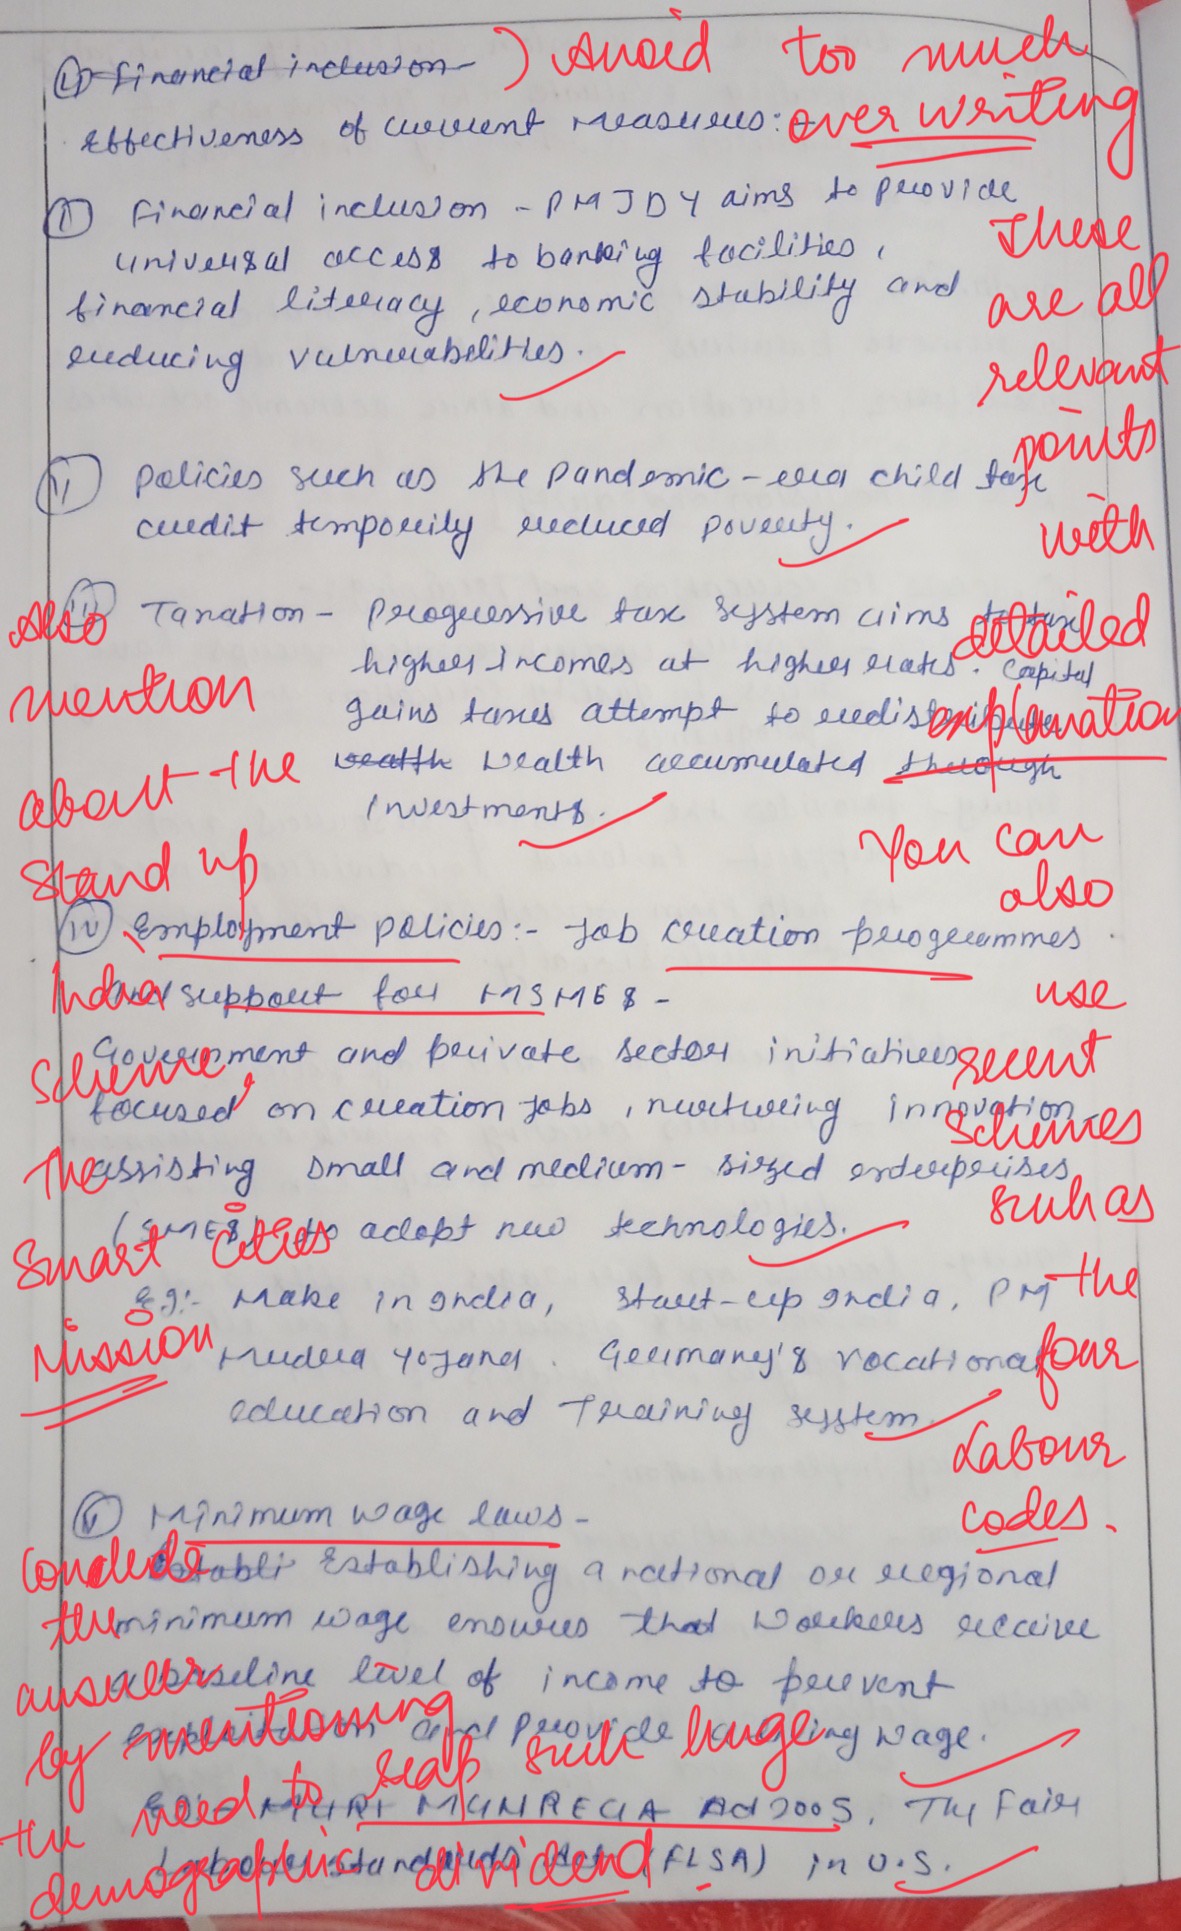 ① Financial inclusion - ) Avoid too much
Effectiveness of current measures:- over writing
① Financial inclusion - PMJDY aims to provide
universal access to banking facilities,
financial literacy, economic stability and
reducing vulnerabilities.
These
are all
relevant
points
with
detailed
explanation
ii Policies such as the pandemic-era child tax
credit temporily reduced poverty.
iii Taxation - Progressive tax system aims to tax
higher incomes at higher rates. Capital
gains taxes attempt to redistribute
wealth wealth accumulated through
investments.
Also
mention
about the
Stand up
India
Scheme,
The
Smart cities
Mission
You can
also
use
recent
schemes
such as
the
four
Labour
codes.
iv Employment policies:- Job creation programmes
and support for MSMEs -
Government and private sector initiatives
focused on creation jobs, nurturing innovation
assisting small and medium-sized enterprises
(SMEs) to adopt new technologies.
Eg:- Make in India, Start-up India, PM
Mudra Yojana. Germany's vocational
education and Training system.
v Minimum wage laws -
Establi Establishing a national or regional
minimum wage ensures that workers receive
a baseline level of income to prevent
exploitation and provide living wage.
MGNREGA Act 2005, The Fair
Labour standards Act (FLSA) in U.S.
Conclude
the
answer
by mentioning
the need to reap such huge
demographic dividend